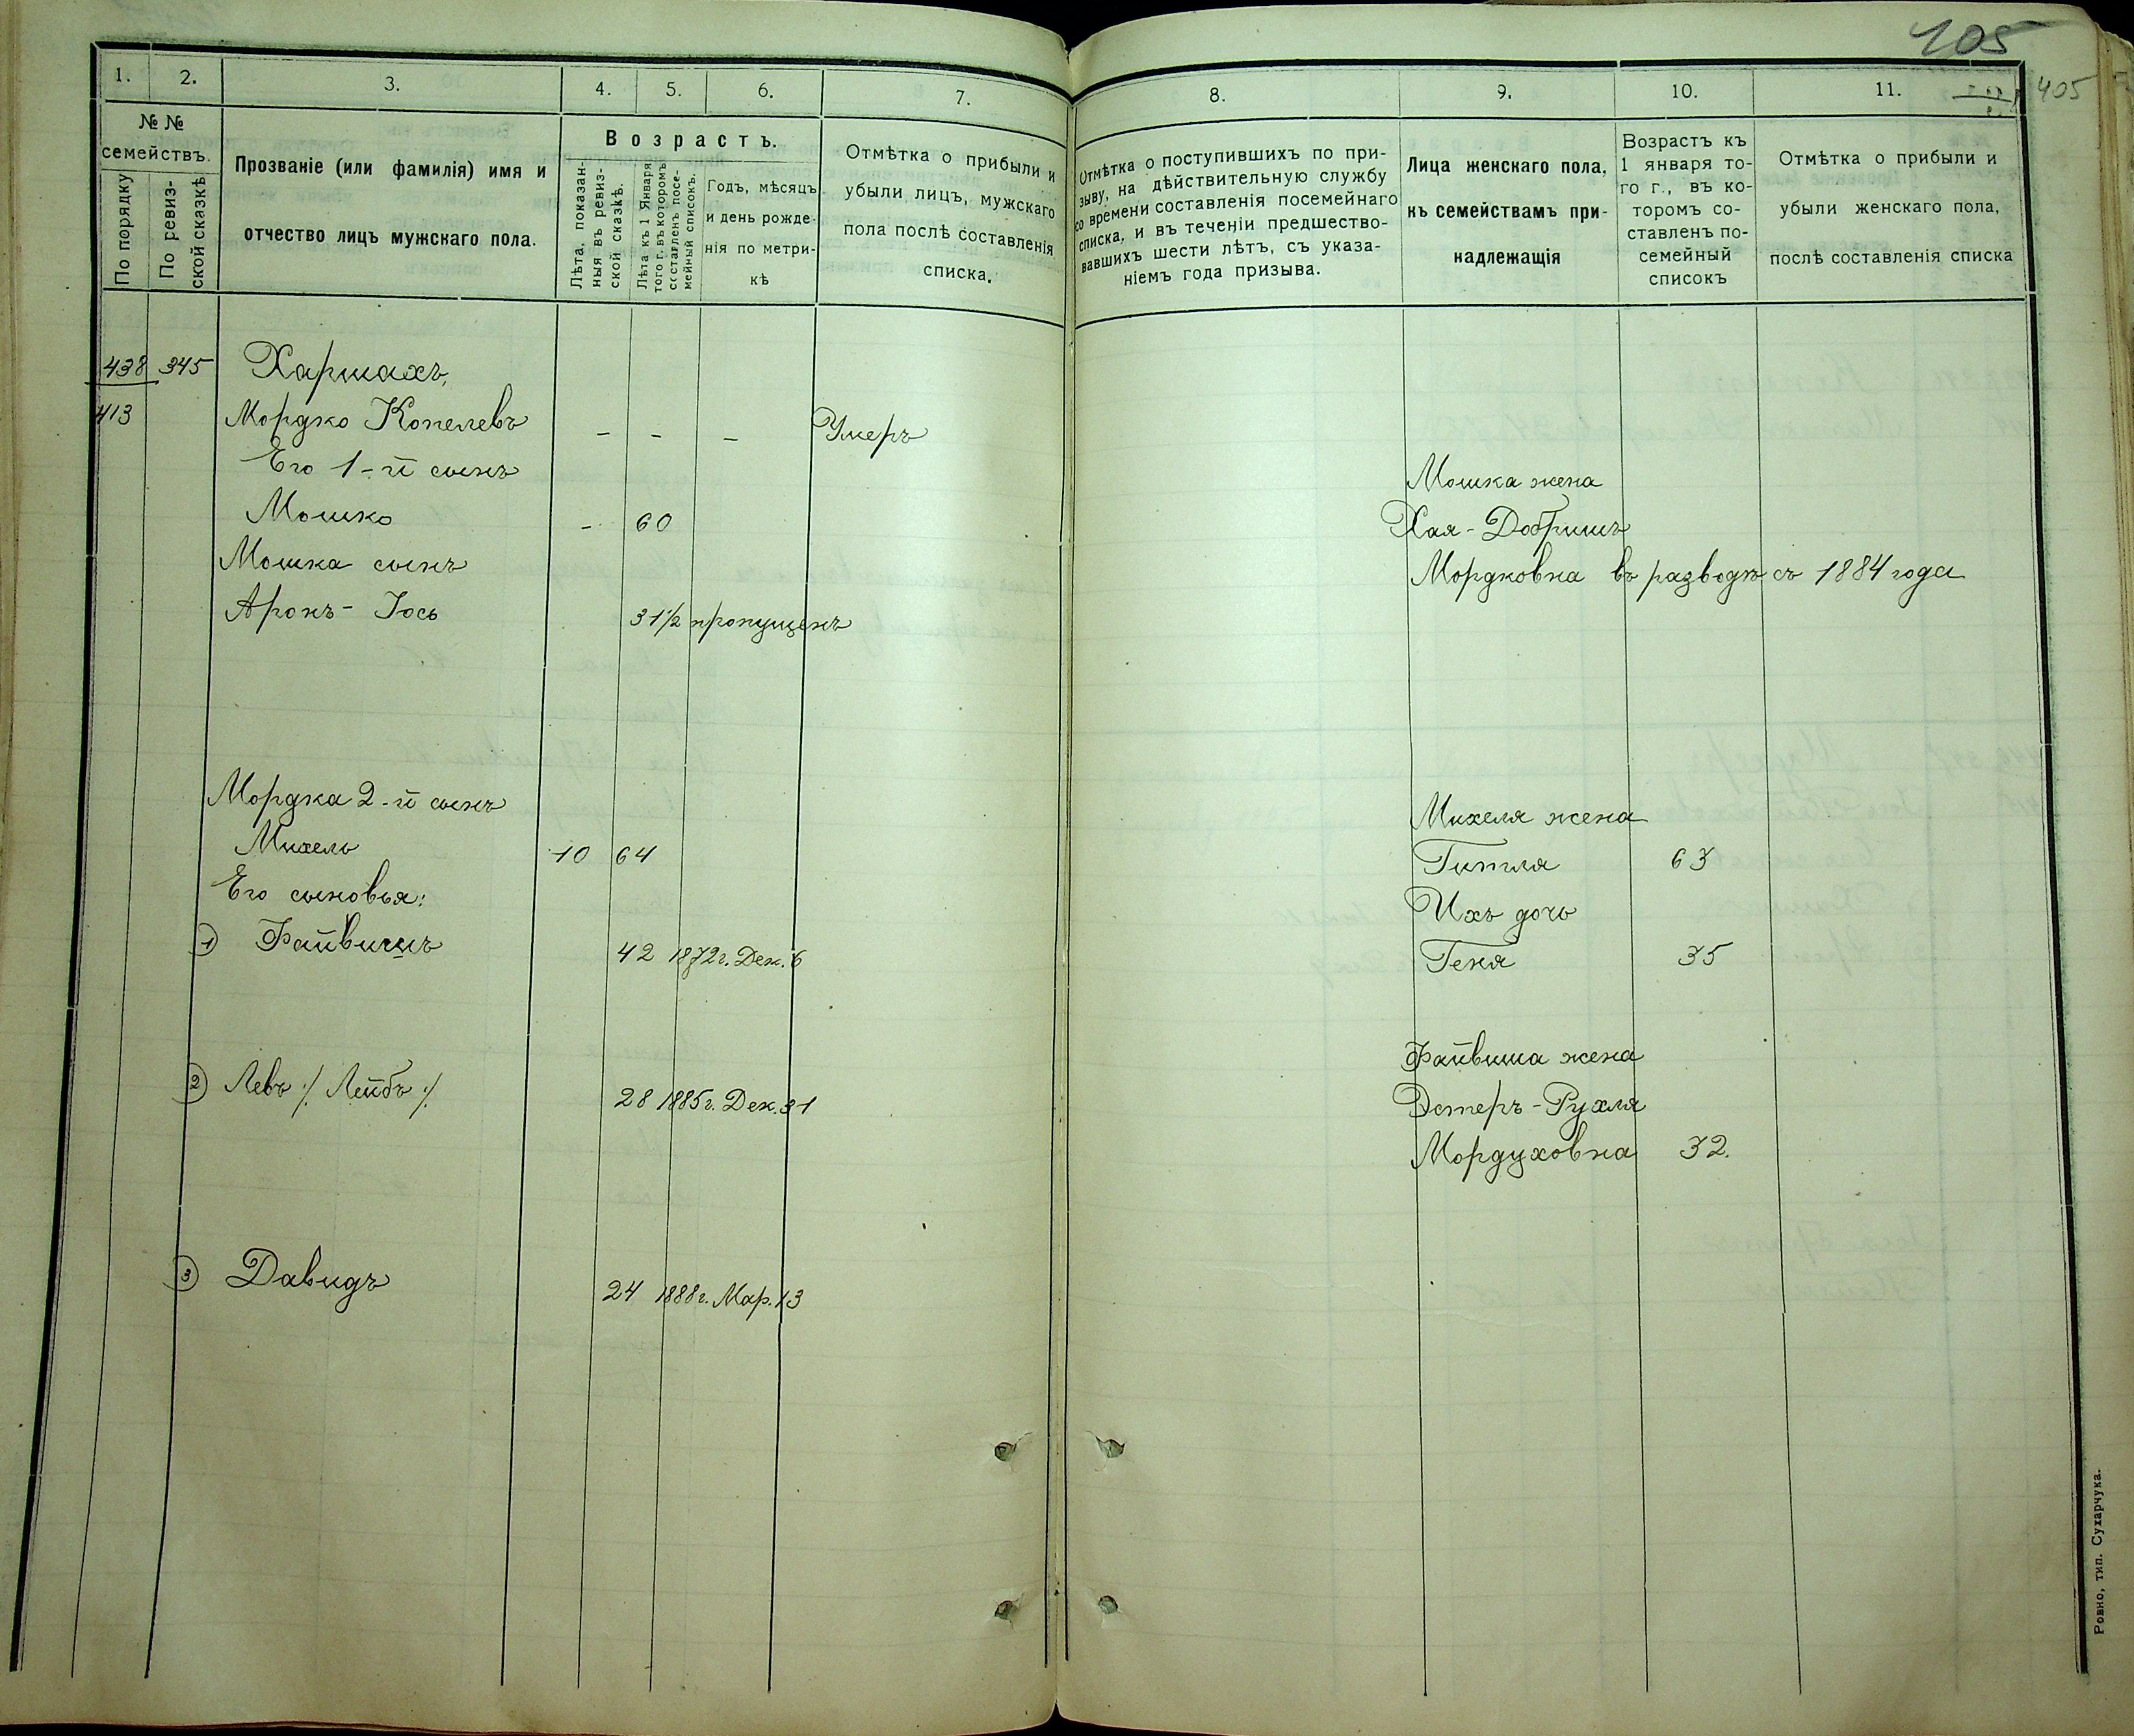 105
405
1. 2. 3. 4. 5. 6. 7.
№ №
семействъ.
По порядку
По ревиз-
ской сказкѣ
Прозваніе (или фамилія) имя и
отчество лицъ мужскаго пола.
Возрастъ.
Лѣта, показан-
ныя въ ревиз-
ской сказкѣ.
Лѣта къ 1 Января
того г. въ которомъ
составленъ посе-
мейный списокъ.
Годъ, мѣсяцъ
и день рожде-
нія по метри-
кѣ
Отмѣтка о прибыли и
убыли лицъ, мужскаго
пола послѣ составленія
списка.
438 345 Харшахъ,
413 Мордко Копелевъ – – – Умеръ
Его 1-й сынъ
Мошко – 60
Мошка сынъ
Аронъ-Іось 31½ пропущенъ
Мордка 2-й сынъ
Михель 10 64
Его сыновья:
1 Файвишъ 42 1872г. Дек. 6
2 Левъ /. Лейбъ /. 28 1885г. Дек. 31
3 Давидъ 24 1888г. Мар. 13
8. 9. 10. 11.
Отмѣтка о поступившихъ по при-
зыву, на дѣйствительную службу
со времени составленія посемейнаго
списка, и въ теченіи предшество-
вавшихъ шести лѣтъ, съ указа-
ніемъ года призыва.
Лица женскаго пола,
къ семействамъ при-
надлежащія
Возрастъ къ
1 января то-
го г., въ ко-
торомъ со-
ставленъ по-
семейный
списокъ
Отмѣтка о прибыли и
убыли женскаго пола,
послѣ составленія списка
Мошка жена
Хая-Добришъ
Мордковна въ разводѣ съ 1884 года
Михеля жена
Гитля 63
Ихъ дочь
Геня 35
Файвиша жена
Эстеръ-Рухля
Мордуховна 32.
Ровно, тип. Сухарчука.